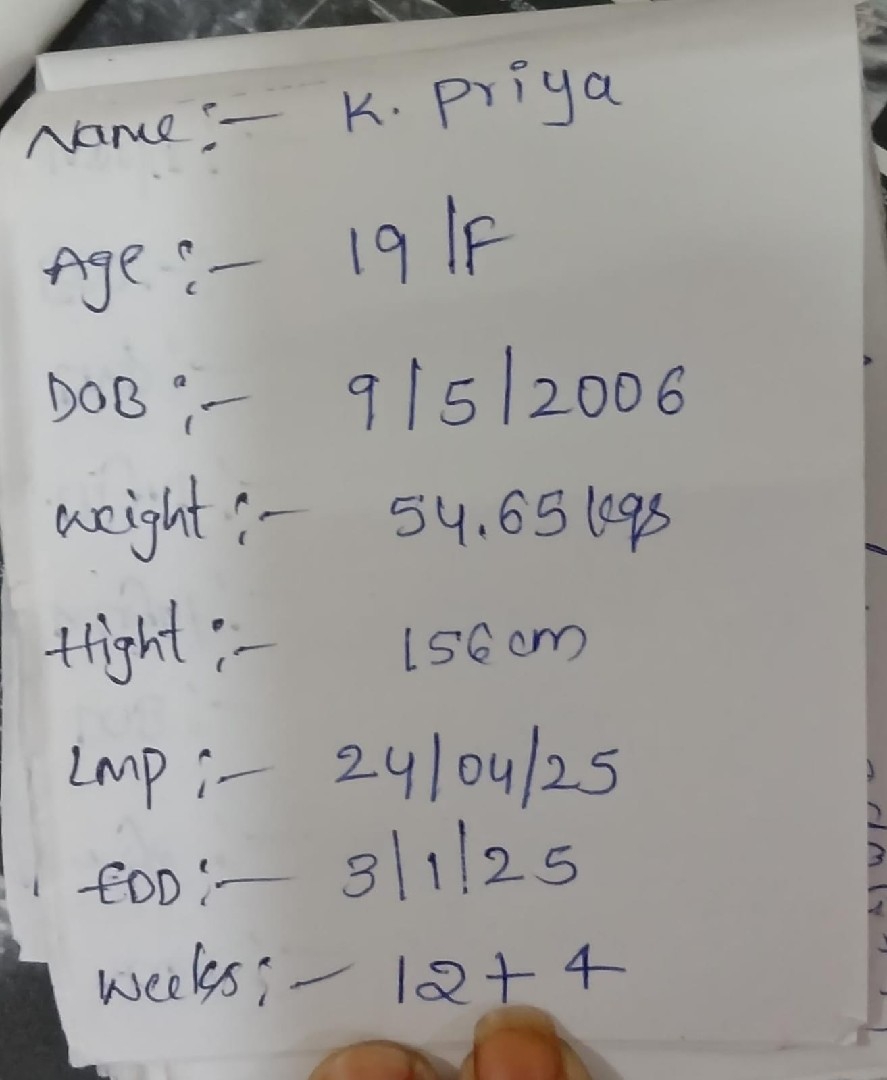 Name :- K. Priya
Age :- 19/F
DOB :- 9/5/2006
weight :- 54.65 kgs
Hight :- 156 cm
LMP :- 24/04/25
EDD :- 3/1/25
weeks :- 12+4